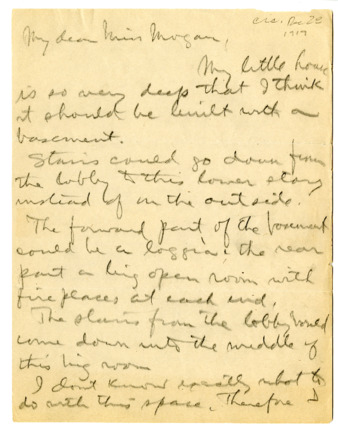 circ. Dec 28
1919
My dear Miss Morgan,
My little house
is so very deep that I think
it should be built with a
basement.
Stairs could go down from
the lobby to this lower story
instead of on the outside.
The forward part of the basement
could be a loggia: the rear
part a big open room with
fireplaces at each end.
The stairs from the lobby would
come down into the middle of
this big room
I don't know exactly what to
do with this space. Therefore I